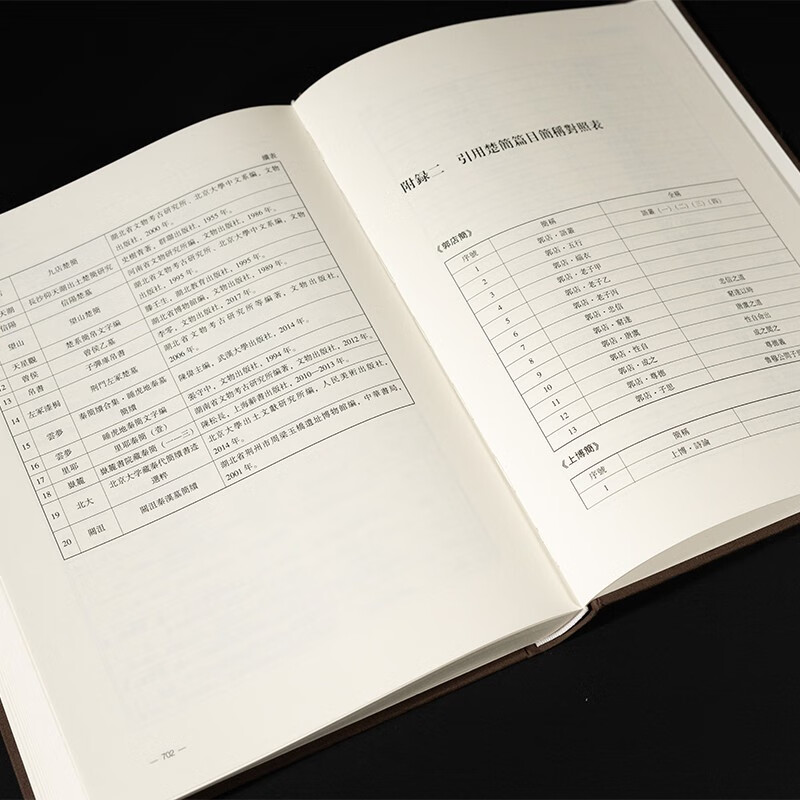 續表
九店楚簡 湖北省文物考古研究所、北京大學中文系編，文物出版社，2000年。
天湖 長沙仰天湖出土楚簡研究 史樹青著，群聯出版社，1955年。
信陽 信陽楚墓 河南省文物研究所編，文物出版社，1986年。
望山 望山楚簡 湖北省文物考古研究所、北京大學中文系編，文物出版社，1995年。
天星觀 楚系簡帛文字編 滕壬生，湖北教育出版社，1995年。
12 曾侯 曾侯乙墓 湖北省博物館編，文物出版社，1989年。
13 帛書 子彈庫帛書 李零，文物出版社，2017年。
14 左冢漆梮 荆門左冢楚墓 湖北省文物考古研究所等編著，文物出版社，2006年。
15 雲夢 秦簡牘合集·睡虎地秦墓簡牘 陳偉主編，武漢大學出版社，2014年。
16 雲夢 睡虎地秦簡文字編 張守中，文物出版社，1994年。
17 里耶 里耶秦簡（壹） 湖南省文物考古研究所編著，文物出版社，2012年。
18 嶽麓 嶽麓書院藏秦簡（一—三） 陳松長，上海辭書出版社，2010—2013年。
19 北大 北京大學藏秦代簡牘書迹選粹 北京大學出土文獻研究所編，人民美術出版社，2014年。
20 關沮 關沮秦漢墓簡牘 湖北省荆州市周梁玉橋遺址博物館編，中華書局，2001年。
— 702 —
附録二 引用楚簡篇目簡稱對照表
《郭店簡》
序號 簡稱 全稱
1 郭店·語叢 語叢（一）（二）（三）（四）
2 郭店·五行
3 郭店·緇衣
4 郭店·老子甲
5 郭店·老子乙
6 郭店·老子丙
7 郭店·忠信 忠信之道
8 郭店·窮達 窮達以時
9 郭店·唐虞 唐虞之道
10 郭店·性自 性自命出
11 郭店·成之 成之聞之
12 郭店·尊德 尊德義
13 郭店·子思 魯穆公問子
《上博簡》
序號 簡稱
1 上博·詩論